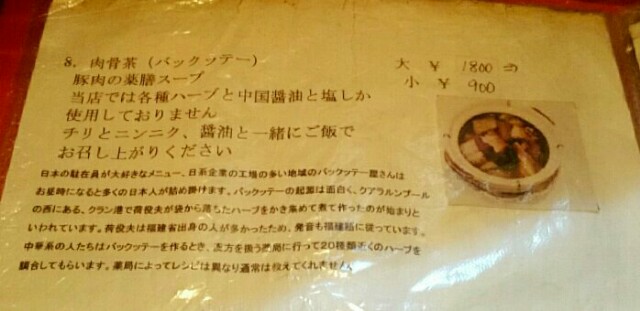 8. 肉骨茶（バックッテー） 大 ￥ 1800
豚肉の薬膳スープ 小 ￥ 900
当店では各種ハーブと中国醤油と塩しか
使用しておりません
チリとニンニク、醤油と一緒にご飯で
お召し上がりください
日本の駐在員が大好きなメニュー、日系企業の工場の多い地域のバックッテー屋さんは
お昼時になると多くの日本人が詰め掛けます。バックッテーの起源は面白く、クアラルンプール
の西にある、クラン港で荷役夫が袋から落ちたハーブをかき集めて煮て作ったのが始まりと
いわれています。荷役夫は福建省出身の人が多かったため、発音も福建語に従っています。
中華系の人たちはバックッテーを作るとき、漢方を扱う薬局に行って20種類近くのハーブを
調合してもらいます。薬局によってレシピは異なり通常は教えてくれません。